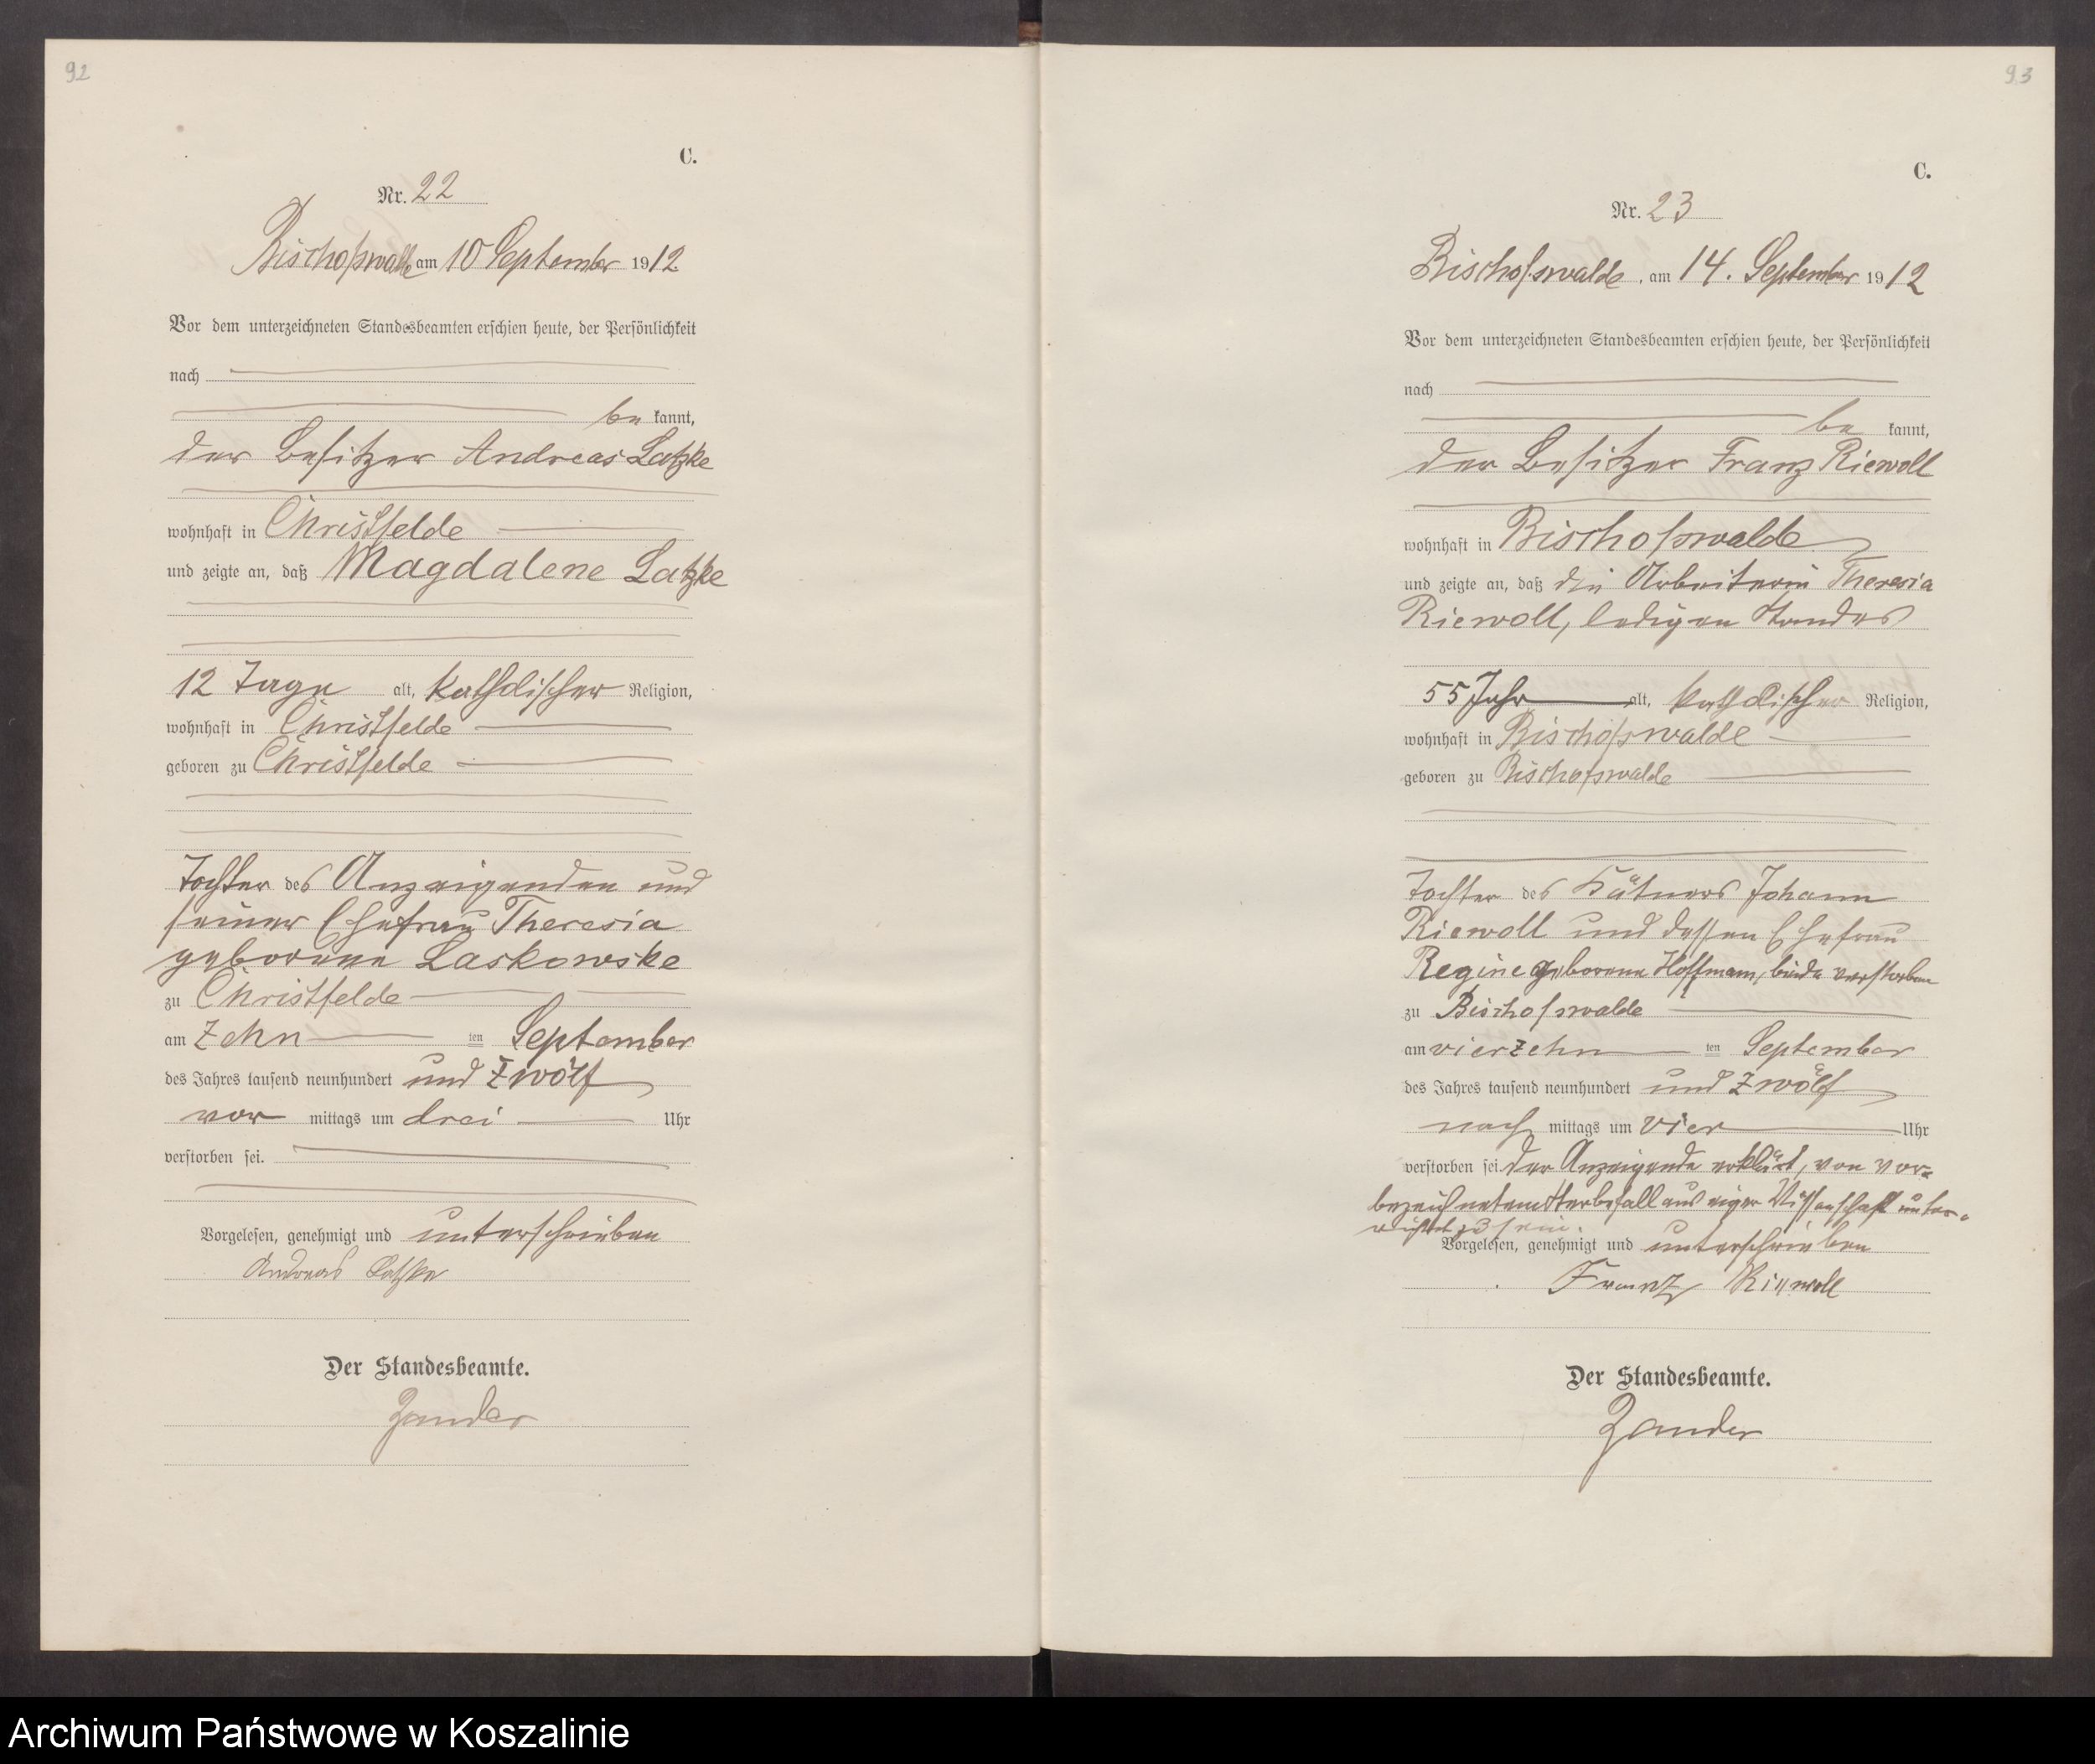 92
C.
Nr. 22
Bischofswalde am 10 September 1912.
Vor dem unterzeichneten Standesbeamten erschien heute, der Persönlichkeit
nach
be kannt,
der Besitzer Andreas Latzke
wohnhaft in Christfelde
und zeigte an, daß Magdalene Latzke
12 Tage alt, katholischer Religion,
wohnhaft in Christfelde
geboren zu Christfelde
Tochter des Anzeigenden und
seiner Ehefrau Theresia
geborene Laskowske
zu Christfelde
am zehn ten September
des Jahres tausend neunhundert und zwölf
vor mittags um drei Uhr
verstorben sei.
Vorgelesen, genehmigt und unterschrieben
Andreas Latzke
Der Standesbeamte.
Zander
93
C.
Nr. 23
Bischofswalde, am 14. September 1912
Vor dem unterzeichneten Standesbeamten erschien heute, der Persönlichkeit
nach
be kannt,
der Besitzer Franz Riewoll
wohnhaft in Bischofswalde
und zeigte an, daß die Arbeiterin Theresia
Riewoll, ledigen Standes
55 Jahr alt, katholischer Religion,
wohnhaft in Bischofswalde
geboren zu Bischofswalde
Tochter des Kätners Johann
Riewoll und dessen Ehefrau
Regine geborene Hoffmann, beide verstorben
zu Bischofswalde
am vierzehn ten September
des Jahres tausend neunhundert und zwölf
nach mittags um vier Uhr
verstorben sei. Der Anzeigende erklärt, von vor-
bezeichnetem Sterbefall aus eigener Wissenschaft unter-
richtet zu sein.
Vorgelesen, genehmigt und unterschrieben
Franz Riewoll
Der Standesbeamte.
Zander
Archiwum Państwowe w Koszalinie